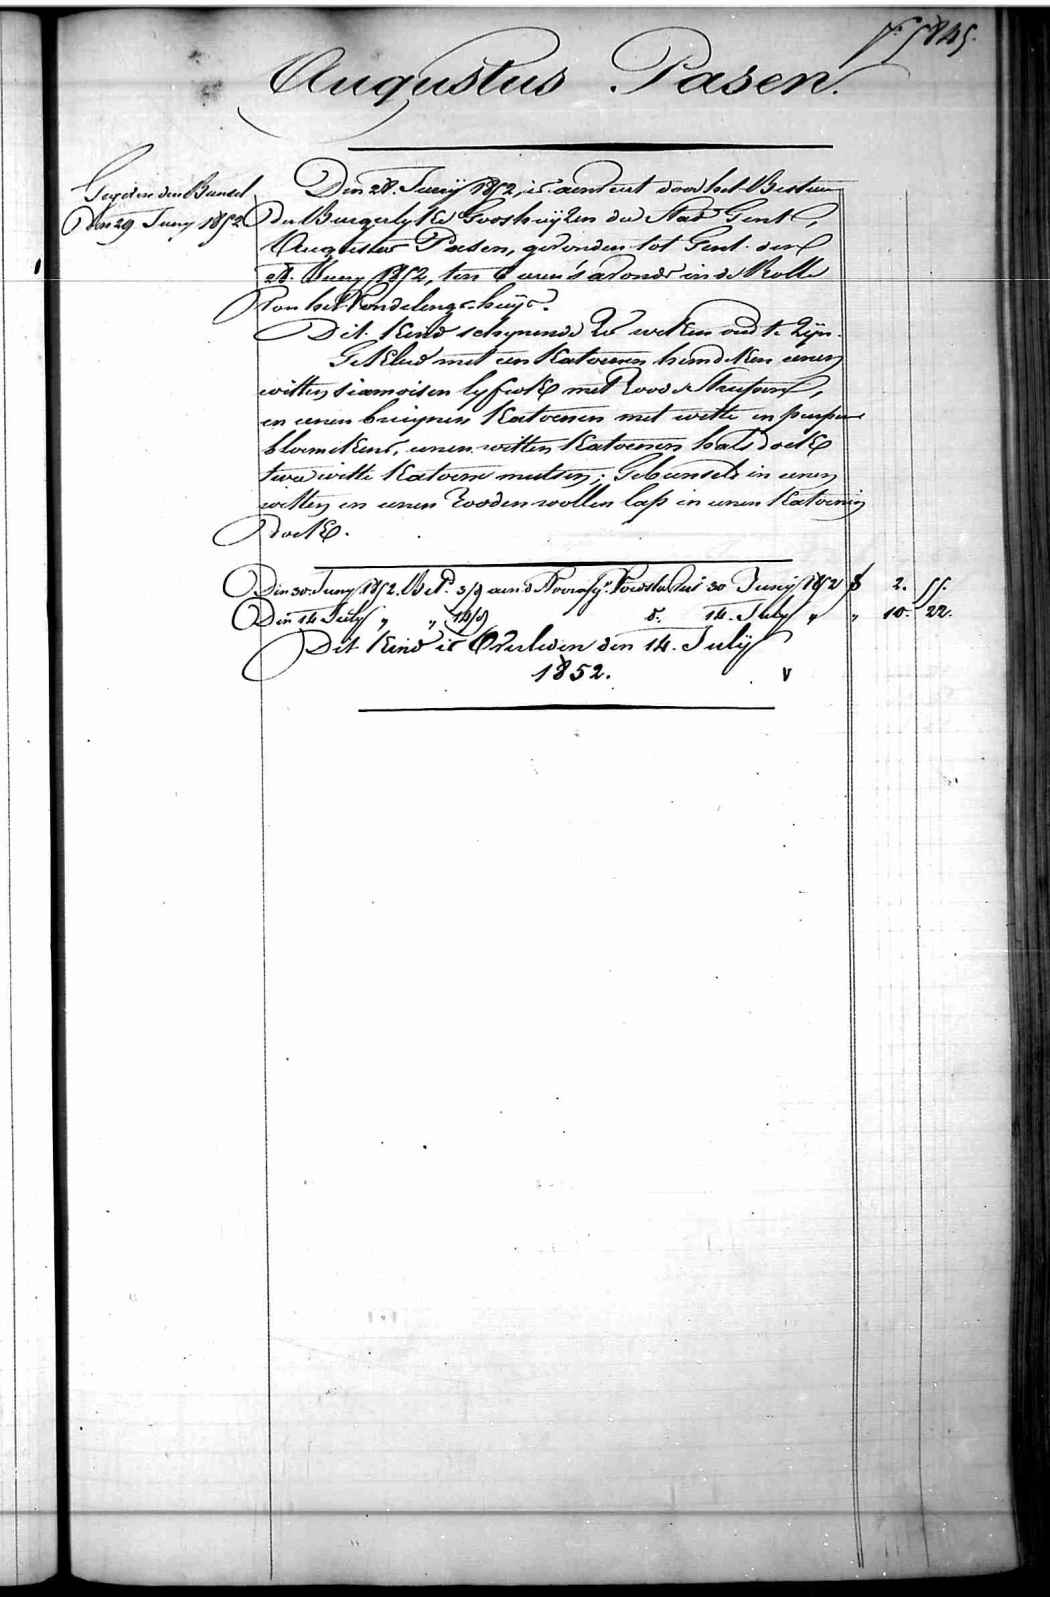 Augustus Pasen.
Den 29 Juny 1852
Den 28. Junij 1852, is door het Bestuur
der Burgerlyke Godshuyzen der Stad Gent,
Augustus Pasen, gevonden tot Gent den
28. Juny 1852, ten 6 uren 's avonds in de Rolle
van het Vondelingshuys.
Dit Kind schynende weken oud te Zijn.
Gekleed met een Katoenen hemdeken eenen
witten siamoisen lyfrok met Roode Streepen,
en eenen bruynen Katoenen met witte en purpere
bloemekens, eenen witten Katoenen halsdoek
twee witte Katoene mutsen; Gebunseld in eenen
witten en eenen Rooden wollen lap in eenen Katoenen
doek.
Den 30. Juny 1852. 3/9 aen d' 30 Junij 1852 2. 55.
Den 14 July " " 14/9 14. July " " 10. 22.
Dit Kind is Overleden den 14. Julij
1852.